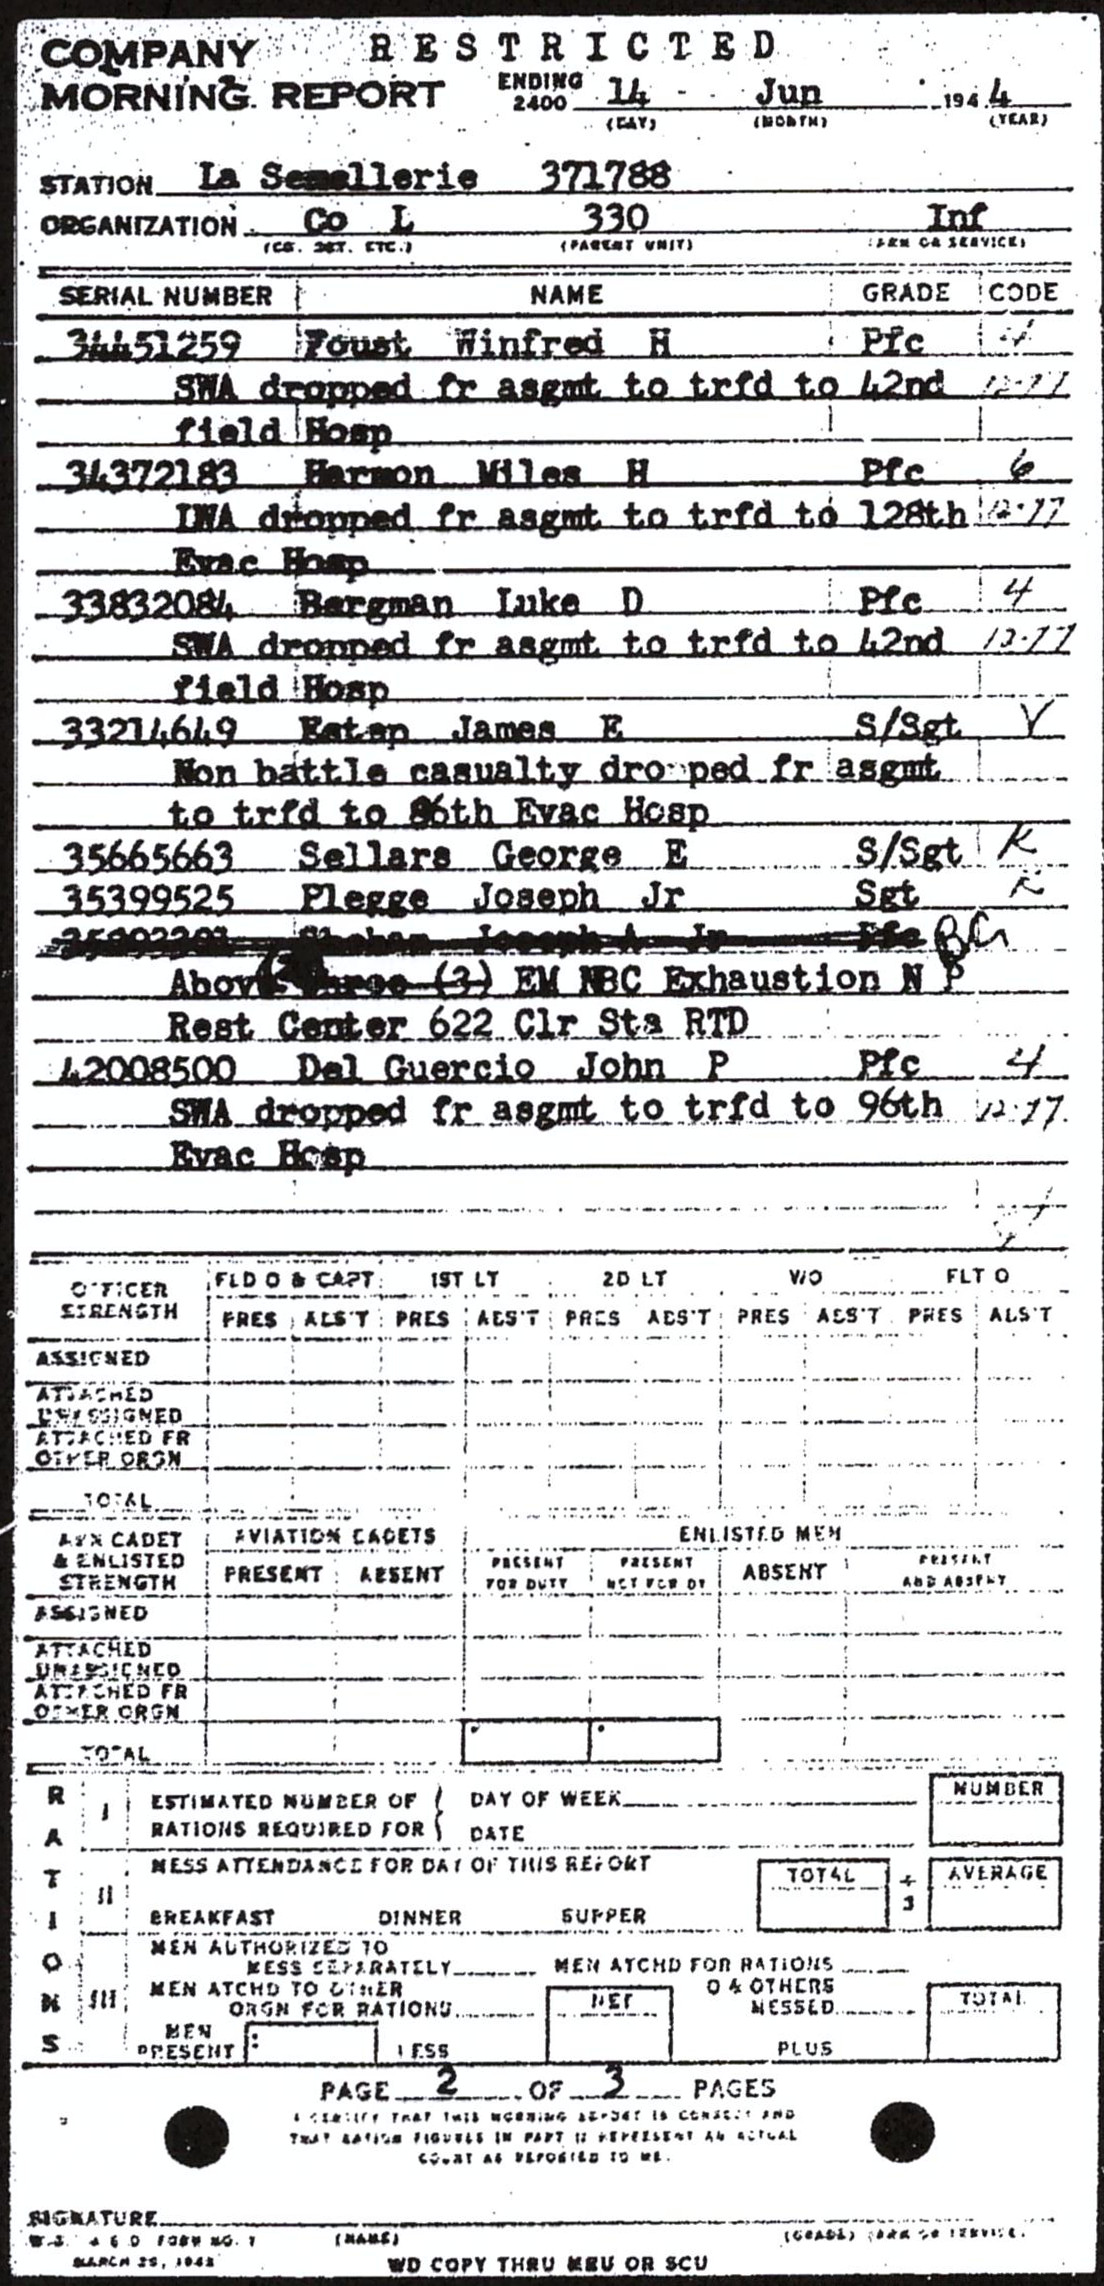 RESTRICTED
COMPANY
MORNING REPORT
ENDING 2400 14 Jun 1944
(DAY) (MONTH) (YEAR)
STATION La Semellerie 371788
ORGANIZATION Co L 330 Inf
(CO. DET. ETC.) (PARENT UNIT) (ARM OR SERVICE)
SERIAL NUMBER NAME GRADE CODE
34451259 Foust Winfred H Pfc 4
SWA dropped fr asgmt to trfd to 42nd 12-77
field Hosp
34372183 Harmon Miles H Pfc 6
LWA dropped fr asgmt to trfd to 128th 12-77
Evac Hosp
33832084 Bergman Luke D Pfc 4
SWA dropped fr asgmt to trfd to 42nd 12-77
field Hosp
33214649 Estep James E S/Sgt Y
Non battle casualty dropped fr asgmt
to trfd to 96th Evac Hosp
35665663 Sellars George E S/Sgt K
35399525 Plegge Joseph Jr Sgt K
Joseph A Jr Pfc BG
Above (2) Three (3) EM NBC Exhaustion N P
Rest Center 622 Clr Sta RTD
42008500 Del Guercio John P Pfc 4
SWA dropped fr asgmt to trfd to 96th 12-77
Evac Hosp
OFFICER STRENGTH FLD O & CAPT 1ST LT 2D LT W/O FLT O
PRES ABS'T PRES ABS'T PRES ABS'T PRES ABS'T PRES ABS'T
ASSIGNED
ATTACHED
UNASSIGNED
ATTACHED FR
OTHER ORGN
TOTAL
AVN CADET & ENLISTED STRENGTH AVIATION CADETS ENLISTED MEN
PRESENT ABSENT PRESENT FOR DUTY PRESENT NOT FOR DY ABSENT PRESENT AND ABSENT
ASSIGNED
ATTACHED
UNASSIGNED
ATTACHED FR
OTHER ORGN
TOTAL
RATIONS
I ESTIMATED NUMBER OF RATIONS REQUIRED FOR DAY OF WEEK DATE NUMBER
II MESS ATTENDANCE FOR DAY OF THIS REPORT TOTAL ÷ 3 AVERAGE
BREAKFAST DINNER SUPPER
III MEN AUTHORIZED TO
MESS SEPARATELY MEN ATCHD FOR RATIONS
MEN ATCHD TO OTHER O & OTHERS
ORGN FOR RATIONS NET MESSED TOTAL
MEN PRESENT LESS PLUS
PAGE 2 OF 3 PAGES
I CERTIFY THAT THIS MORNING REPORT IS CORRECT AND
THAT RATION FIGURES IN PART II REPRESENT AN ACTUAL
COUNT AS REPORTED TO ME.
SIGNATURE
W.D. A G O FORM NO. 1 (NAME) (GRADE) (ARM OR SERVICE)
MARCH 25, 1942
WD COPY THRU MRU OR SCU